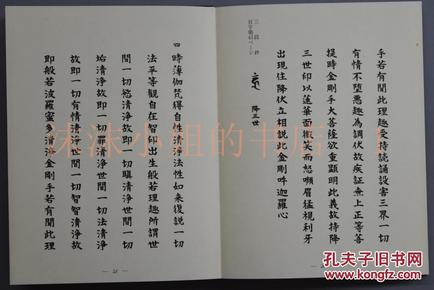 手若有聞此理趣受持讀誦設害三界一切
有情不墮惡趣為調伏故疾證無上正等菩
提時金剛手大菩薩欲重顯明此義故持降
三世印以蓮華面微笑而怒嚬眉猛視利牙
出現住降伏立相說此金剛吽迦羅心
降三世
三段鈔
四 時薄伽梵得自性清淨法性如來復說一切
法平等觀自在智印出生般若理趣所謂世
間一切慾清淨故即一切瞋清淨世間一切
垢清淨故即一切罪清淨世間一切法清淨
故即一切有情清淨世間一切智智清淨故
即般若波羅蜜多清淨金剛手若有聞此理
孔夫子旧书网